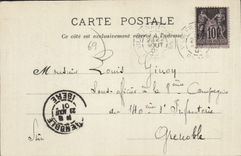 CARTE POSTALE
Ce côté est exclusivement réservé à l'adresse
69
10
AOUT
Monsieur Louis Ginoy
Sous-officier à la 8ème Compagnie
du 140e d'Infanterie
GRENOBLE
ISÈRE
01
Grenoble